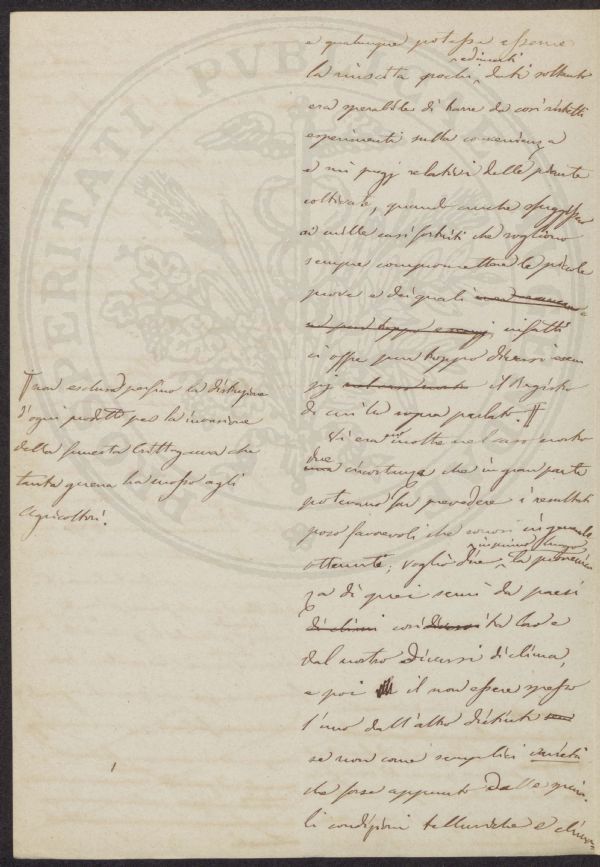 e qualunque potesse esserne
la riuscita pochi dati soltanto
redimenti
era sperabile di trarre da così ristretti
esperimenti sulla convenienza
e sui pregj relativi delle piante
coltivate, quando anche sfuggissero
ai mille casi fortuiti che vogliono
sempre compromettere le piccole
prove e dei quali
infatti
ci offre pur troppo diversi esem
pj il Registro
di cui la sopra parlato. ¶
Vi era inoltre nel caso nostro
due
una circostanza che in gran parte
potevano far prevedere i resultati
poco favorevoli che si
ottennero; voglio dire, la provenien
in primo luogo
za di quei semi da paesi
di climi così tra loro e
dal nostro diversi di clima,
e poi il non essere spesso
l'uno dall'altro distinti
se non come semplici varietà
che forse appunto dalle speci-
li condizioni telluriche e clima-
¶ non esclusa persino la distruzione
d'ogni prodotto per la invasione
della funesta Crittogama che
tanta guerra ha mosso agli
Agricoltori.
PROSPERITATI PUBLICAE